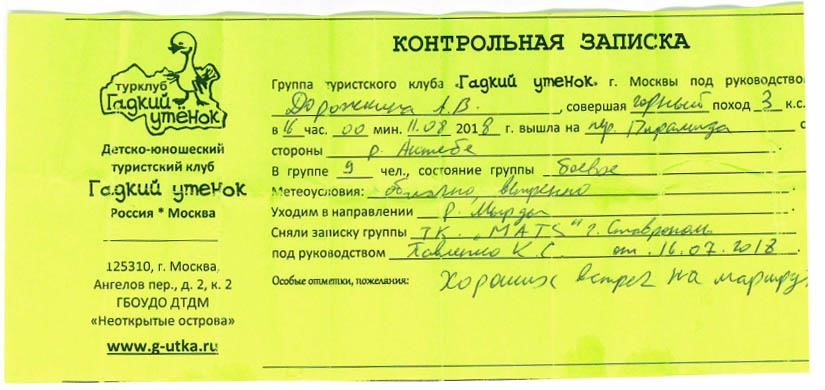 турклуб
Гадкий
утёнок
Детско-юношеский
туристский клуб
Гадкий утенок
Россия * Москва
125310, г. Москва,
Ангелов пер., д. 2, к. 2
ГБОУДО ДТДМ
«Неоткрытые острова»
www.g-utka.ru
КОНТРОЛЬНАЯ ЗАПИСКА
Группа туристского клуба «Гадкий утенок» г. Москвы под руководство
Дорожкина А.В., совершая горный поход 3 к.с.
в 16 час. 00 мин. 11.08 2018 г. вышла на пер. Пирамида с
стороны р. Актебе
В группе 9 чел., состояние группы боевое
Метеоусловия: облачно, ветрено
Уходим в направлении р. Мырды
Сняли записку группы ТК. „МАТS“ г. Ставрополь
под руководством Павленко К.С. от 16.07.2018.
Особые отметки, пожелания: Хороших встреч на маршру